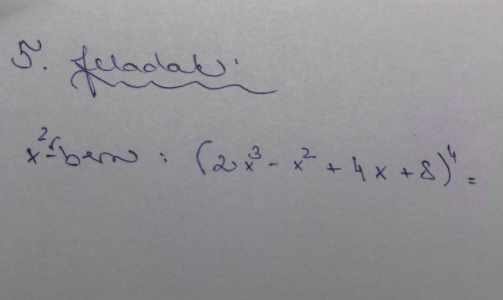 5. feladat:
x²-ben : (2x³ - x² + 4x + 8)⁴ =